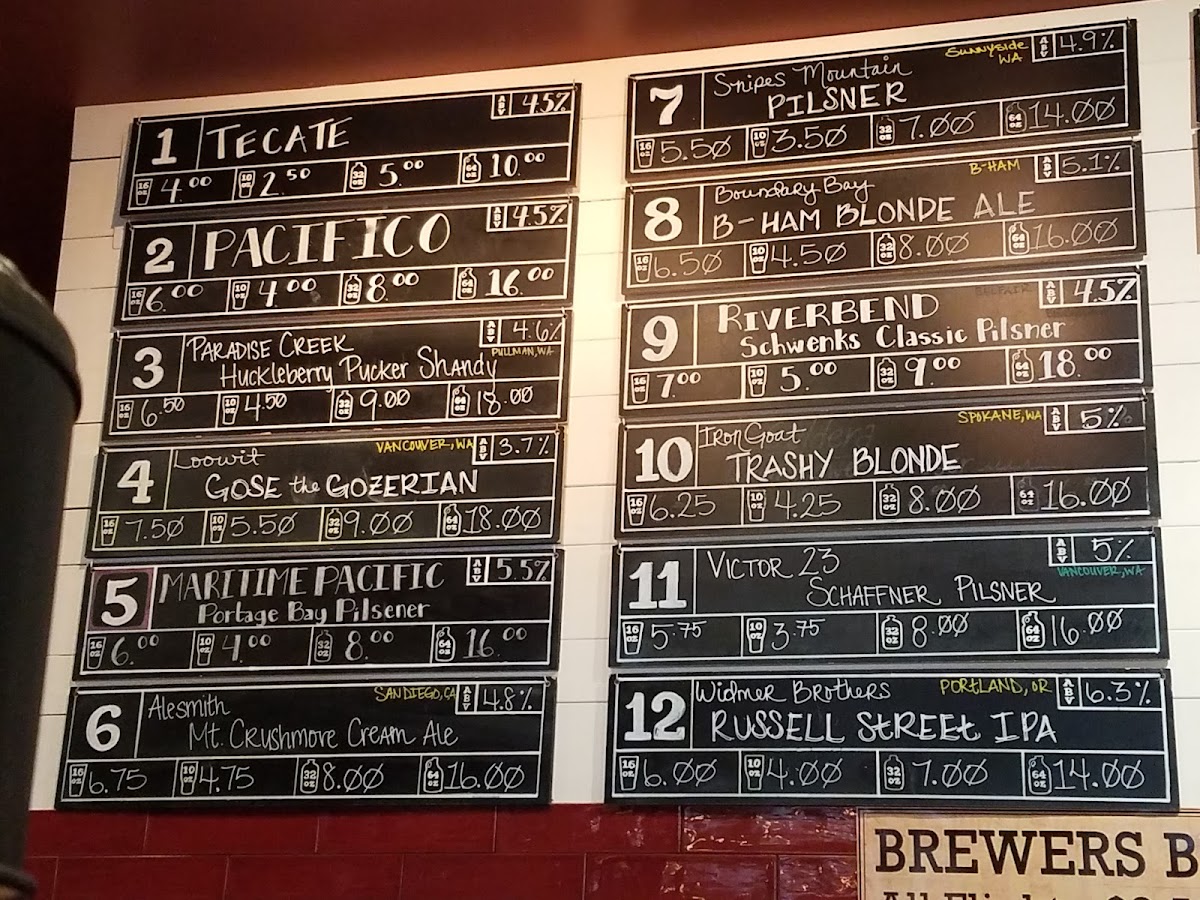 1 TECATE ABV 4.5%
16 oz 4.00 10 oz 2.50 32 oz 5.00 64 oz 10.00
2 PACIFICO ABV 4.5%
16 oz 6.00 10 oz 4.00 32 oz 8.00 64 oz 16.00
3 PARADISE CREEK ABV 4.6%
PULLMAN, WA
Huckleberry Pucker Shandy
16 oz 6.50 10 oz 4.50 32 oz 9.00 64 oz 18.00
4 Loowit VANCOUVER, WA ABV 3.7%
GOSE the GOZERIAN
16 oz 7.50 10 oz 5.50 32 oz 9.00 64 oz 18.00
5 MARITIME PACIFIC ABV 5.5%
Portage Bay Pilsener
16 oz 6.00 10 oz 4.00 32 oz 8.00 64 oz 16.00
6 Alesmith SAN DIEGO, CA ABV 4.8%
Mt. Crushmore Cream Ale
16 oz 6.75 10 oz 4.75 32 oz 8.00 64 oz 16.00
7 Snipes Mountain Sunnyside WA ABV 4.9%
PILSNER
16 oz 5.50 10 oz 3.50 32 oz 7.00 64 oz 14.00
8 Boundary Bay B-HAM ABV 5.1%
B-HAM BLONDE ALE
16 oz 6.50 10 oz 4.50 32 oz 8.00 64 oz 16.00
9 RIVERBEND ABV 4.5%
Schwenks Classic Pilsner
16 oz 7.00 10 oz 5.00 32 oz 9.00 64 oz 18.00
10 Iron Goat SPOKANE, WA ABV 5%
TRASHY BLONDE
16 oz 6.25 10 oz 4.25 32 oz 8.00 64 oz 16.00
11 VICTOR 23 ABV 5%
VANCOUVER, WA
SCHAFFNER PILSNER
16 oz 5.75 10 oz 3.75 32 oz 8.00 64 oz 16.00
12 Widmer Brothers PORTLAND, OR ABV 6.3%
RUSSELL STREET IPA
16 oz 6.00 10 oz 4.00 32 oz 7.00 64 oz 14.00
BREWERS B
All